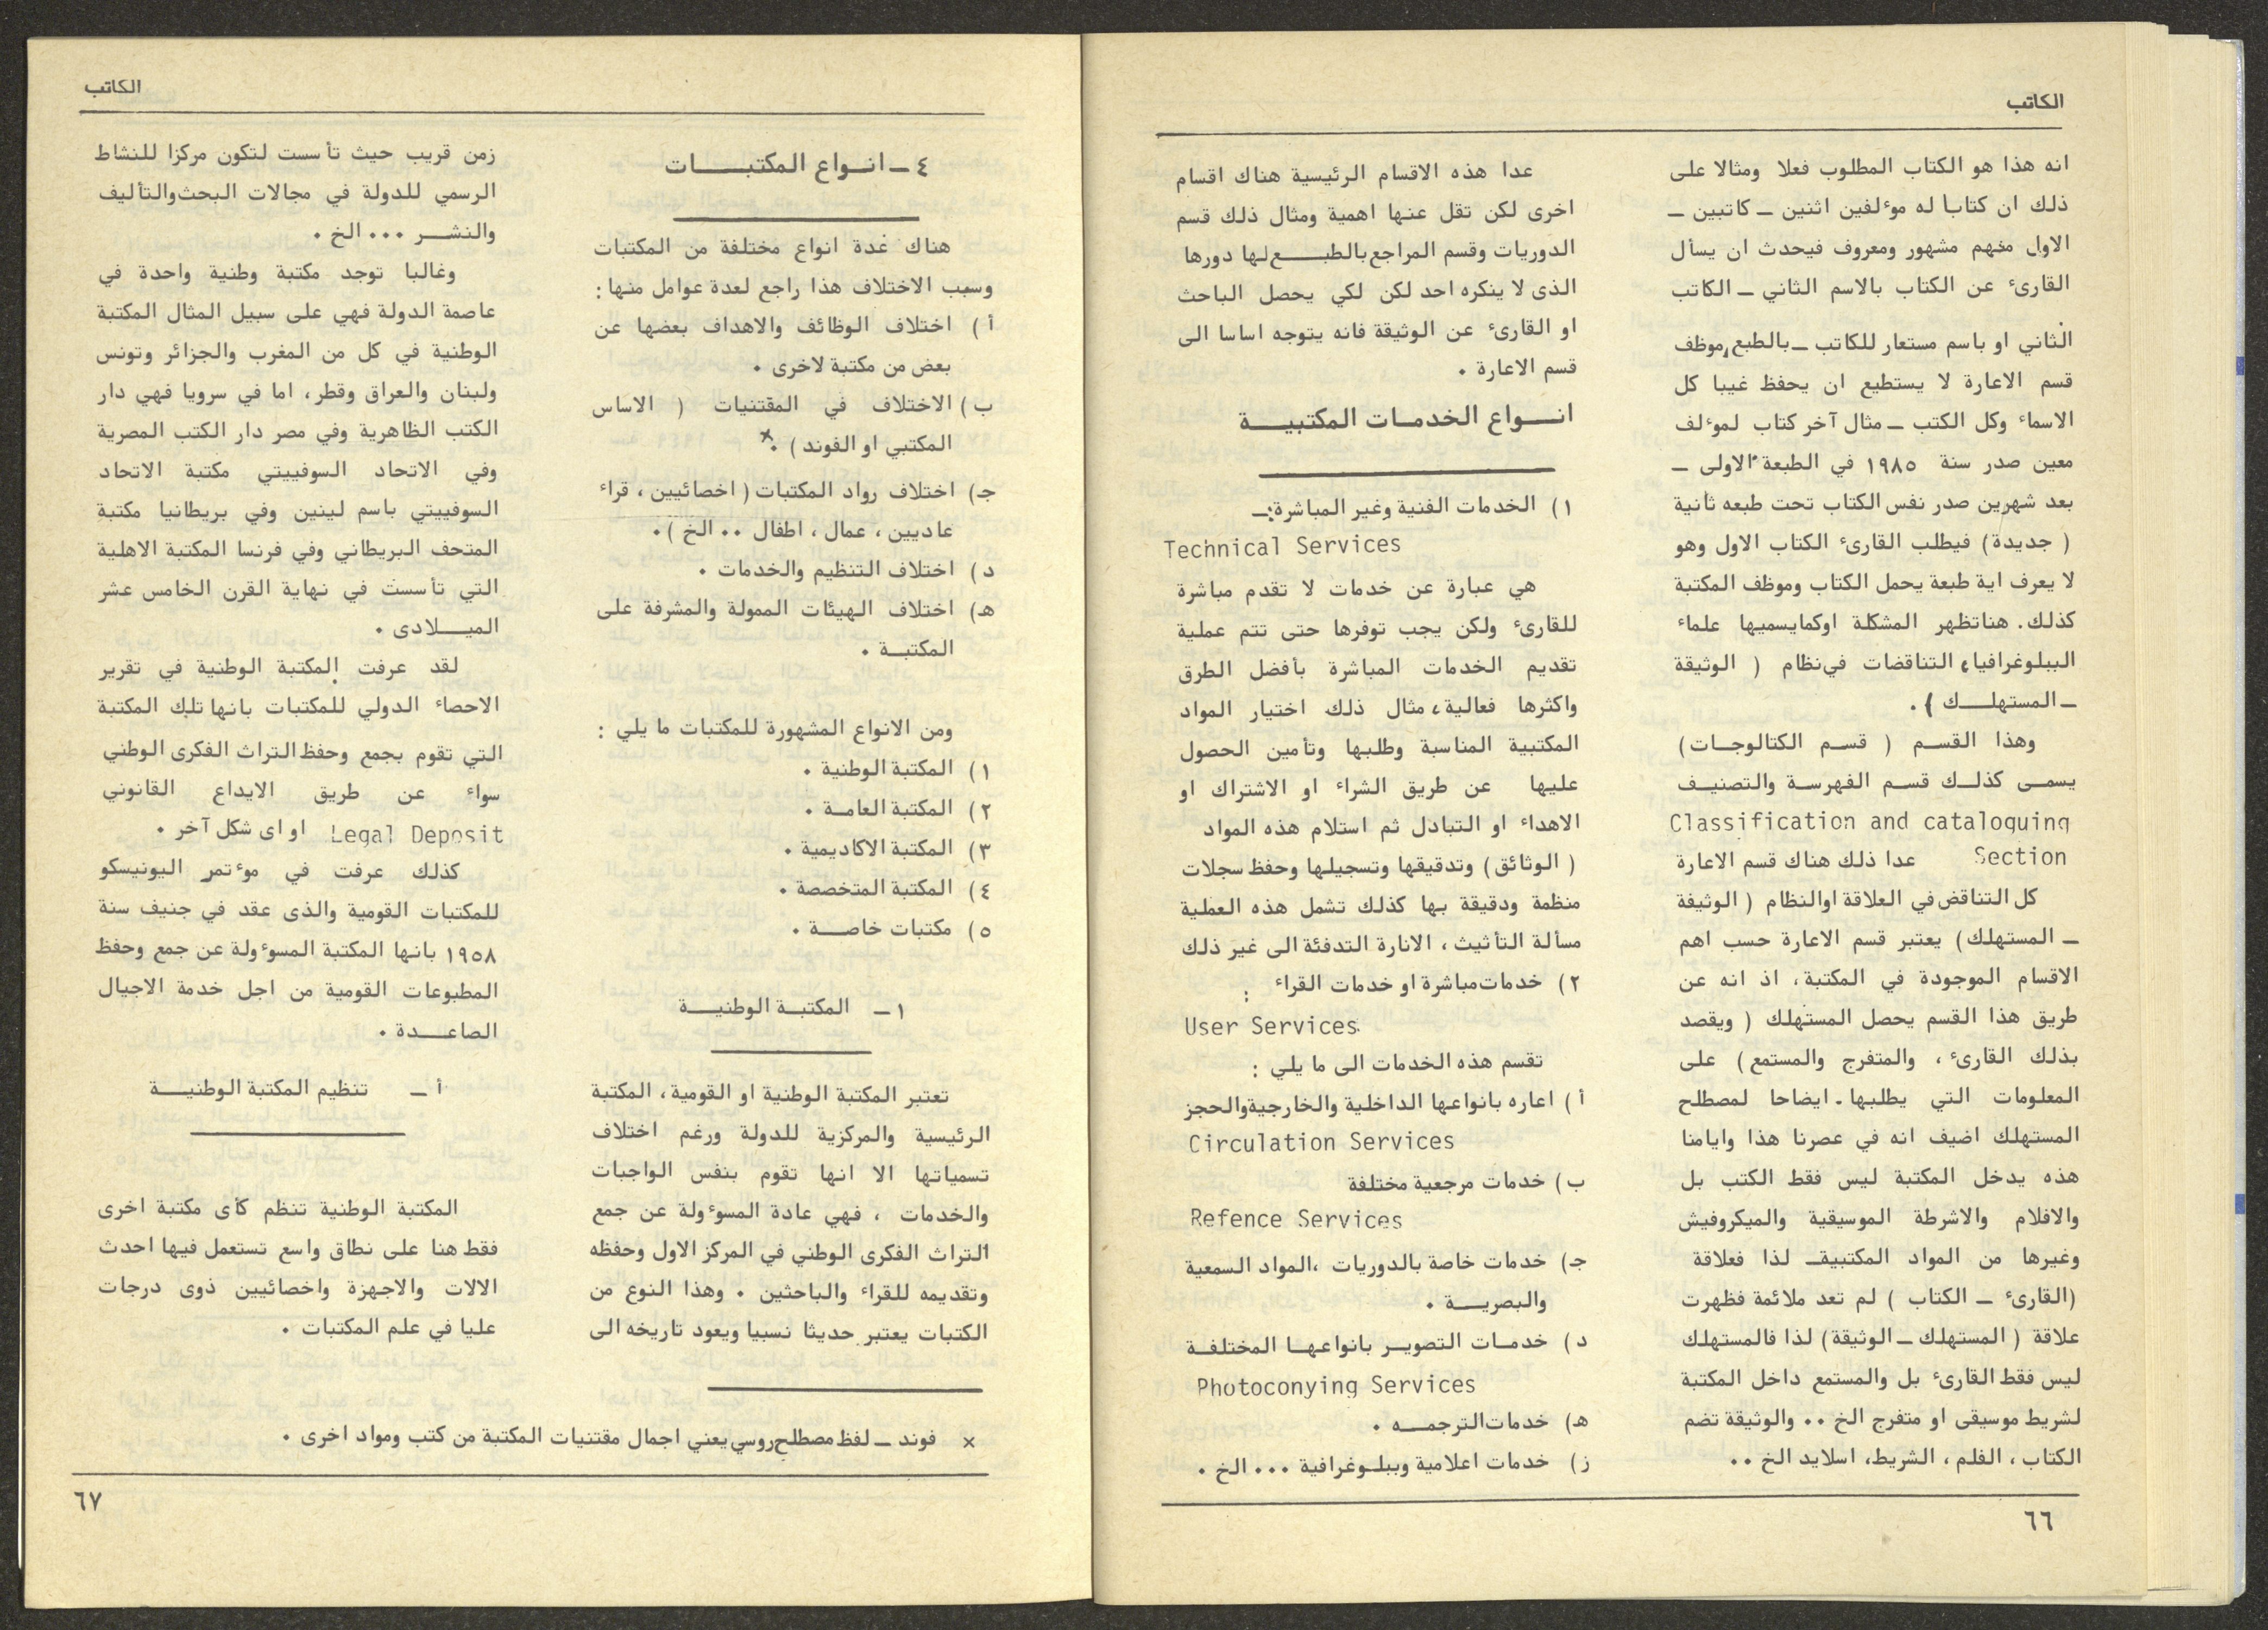 الكاتب
انه هذا هو الكتاب المطلوب فعلا ومثالا على
ذلك ان كتابا له موءلفين اثنين ـ كاتبين ـ
الاول منهم مشهور ومعروف فيحدث ان يسأل
القارىء عن الكتاب بالاسم الثاني ـ الكاتب
الثاني او باسم مستعار للكاتب ـ بالطبع، موظف
قسم الاعارة لا يستطيع ان يحفظ غيبا كل
الاسماء وكل الكتب ـ مثال آخر كتاب لموءلف
معين صدر سنة ١٩٨٥ في الطبعة الاولى ـ
بعد شهرين صدر نفس الكتاب تحت طبعه ثانية
( جديدة ) فيطلب القارىء الكتاب الاول وهو
لا يعرف اية طبعة يحمل الكتاب وموظف المكتبة
كذلك. هنا تظهر المشكلة اوكمايسميها علماء
الببلوغرافيا، التناقضات في نظام ( الوثيقة
ـ المستهلـــك ) .
وهذا القسـم ( قسـم الكتالوجـات )
يسمـى كذلـك قسـم الفهرسـة والتصنيـف
Classification and cataloguing
Section عدا ذلك هناك قسم الاعارة
كل التناقض في العلاقة اوالنظام ( الوثيقة
ـ المستهلك ) يعتبر قسم الاعارة حسب اهم
الاقسام الموجودة في المكتبة، اذ انه عن
طريق هذا القسم يحصل المستهلك ( ويقصد
بذلك القارىء ، والمتفرج والمستمع ) على
المعلومات التي يطلبها . ايضاحا لمصطلح
المستهلك اضيف انه في عصرنا هذا وايامنا
هذه يدخل المكتبة ليس فقط الكتب بل
والافلام والاشرطة الموسيقية والميكروفيش
وغيرها من المواد المكتبية ـ لذا فعلاقة
(القارىء ـ الكتاب ) لم تعد ملائمة فظهرت
علاقة ( المستهلك ـ الوثيقة ) لذا فالمستهلك
ليس فقط القارىء بل والمستمع داخل المكتبة
لشريط موسيقى او متفرج الخ .. والوثيقة تضم
الكتاب ، الفلم ، الشريط، اسلايد الخ ..
عدا هذه الاقسام الرئيسية هناك اقسام
اخرى لكن تقل عنها اهمية ومثال ذلك قسم
الدوريات وقسم المراجع بالطبـــع لها دورها
الذى لا ينكره احد لكن لكي يحصل الباحث
او القارىء عن الوثيقة فانه يتوجه اساسا الى
قسم الاعارة .
انـــواع الخدمـات المكتبيـــة
١ ) الخدمات الفنية وغير المباشرة :ـ
Technical Services
هي عبارة عن خدمات لا تقدم مباشرة
للقارىء ولكن يجب توفرها حتى تتم عملية
تقديم الخدمات المباشرة بأفضل الطرق
واكثرها فعالية ، مثال ذلك اختيار المواد
المكتبية المناسبة وطلبها وتأمين الحصول
عليها عن طريق الشراء او الاشتراك او
الاهداء او التبادل ثم استلام هذه المواد
( الوثائق ) وتدقيقها وتسجيلها وحفظ سجلات
منظمة ودقيقة بها كذلك تشمل هذه العملية
مسألة التأثيث ، الانارة التدفئة الى غير ذلك
٢ ) خدمات مباشرة او خدمات القراء :
User Services
تقسم هذه الخدمات الى ما يلي :
أ ) اعاره بانواعها الداخلية والخارجية والحجز
Circulation Services
ب ) خدمات مرجعية مختلفة
Refence Services
جـ) خدمات خاصة بالدوريات ، المواد السمعية
والبصريـــة .
د ) خدمـات التصويـر بانواعهـا المختلفـة
Photoconying Services
هـ) خدمات الترجمـــه .
ز ) خدمات اعلامية وببلـوغرافية ... الخ .
٦٦
الكاتب
٤ ـ انـــواع المكتبــــــات
هناك عدة انواع مختلفة من المكتبات
وسبب الاختلاف هذا راجع لعدة عوامل منها :
أ ) اختلاف الوظائف والاهداف بعضها عن
بعض من مكتبة لاخرى .
ب ) الاختلاف في المقتنيات ( الاساس
المكتبي او الفوند ) . ×
جـ) اختلاف رواد المكتبات ( اخصائيين ، قراء
عاديين ، عمال ، اطفال .. الخ ) .
د ) اختلاف التنظيم والخدمات .
هـ) اختلاف الهيئات الممولة والمشرفة على
المكتبـة .
ومن الانواع المشهورة للمكتبات ما يلي :
١ ) المكتبة الوطنية .
٢ ) المكتبة العامـة .
٣ ) المكتبة الاكاديمية .
٤ ) المكتبة المتخصصة .
٥ ) مكتبات خاصـــة .
١ ـ المكتبـة الوطنيـــة
تعتبر المكتبة الوطنية او القومية ، المكتبة
الرئيسية والمركزية للدولة ورغم اختلاف
تسمياتها الا انها تقوم بنفس الواجبات
والخدمات ، فهي عادة المسوءولة عن جمع
التراث الفكرى الوطني في المركز الاول وحفظه
وتقديمه للقراء والباحثين . وهذا النوع من
الكتبات يعتبر حديثا نسبيا ويعود تاريخه الى
زمن قريب حيث تأسست لتكون مركزا للنشاط
الرسمي للدولة في مجالات البحث والتأليف
والنشـــر ... الخ .
وغالبا توجد مكتبة وطنية واحدة في
عاصمة الدولة فهي على سبيل المثال المكتبة
الوطنية في كل من المغرب والجزائر وتونس
ولبنان والعراق وقطر ، اما في سرويا فهي دار
الكتب الظاهرية وفي مصر دار الكتب المصرية
وفي الاتحاد السوفييتي مكتبة الاتحاد
السوفييتي باسم لينين وفي بريطانيا مكتبة
المتحف البريطاني وفي فرنسا المكتبة الاهلية
التي تأسست في نهاية القرن الخامس عشر
الميـــلادى .
لقد عرفت المكتبة الوطنية في تقرير
الاحصاء الدولي للمكتبات بانها تلك المكتبة
التي تقوم بجمع وحفظ التراث الفكرى الوطني
سواء عن طريق الايداع القانوني
Legal Deposit او اى شكل آخر .
كذلك عرفت في موءتمر اليونيسكو
للمكتبات القومية والذى عقد في جنيف سنة
١٩٥٨ بانها المكتبة المسوءولة عن جمع وحفظ
المطبوعات القومية من اجل خدمة الاجيال
الصاعــــدة .
أ ـ تنظيم المكتبة الوطنيـــة
المكتبة الوطنية تنظم كأى مكتبة اخرى
فقط هنا على نطاق واسع تستعمل فيها احدث
الالات والاجهزة واخصائيين ذوى درجات
عليا في علم المكتبات .
× فوند ـ لفظ مصطلح روسي يعني اجمال مقتنيات المكتبة من كتب ومواد اخرى .
٦٧